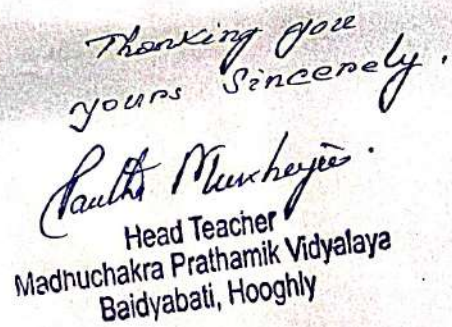 Thanking you
yours Sincerely.
Mukherjee.
Head Teacher
Madhuchakra Prathamik Vidyalaya
Baidyabati, Hooghly